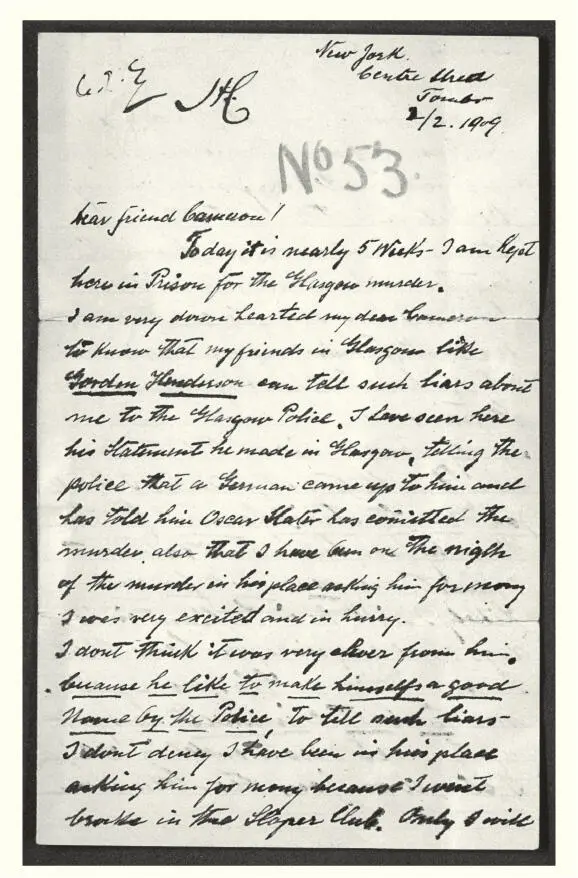 New York.
Centre Street
Tombs
2/2. 1909.
No 53.
Dear friend Cameron!
Today it is nearly 5 Weeks - I am Kept
here in Prison for the Glasgow murder.
I am very down hearted my dear Cameron
to know that my friends in Glasgow like
Gorden Henderson can tell such liars about
me to the Glasgow Police. I have seen here
his Statement he made in Glasgow, telling the
police that a German came up to him and
has told him Oscar Slater has comitted the
murder also that I have been on the nigth
of the murder in his place asking him for mony
I was very excited and in hurry.
I dont think it was very clever from him,
because he like to make himselfs a good
Name by the Police, to tell such liars -
I dont deney I have been in his place
asking him for mony because I went
broke in the Sloper Club. Only I will